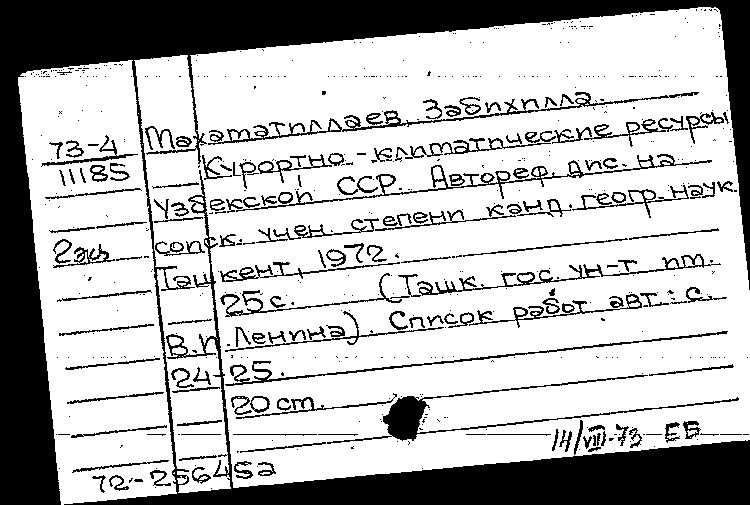 73-4 Махаматиллаев, Забихилла.
11185 Курортно-климатические ресурсы
Узбекской ССР. Автореф. дис. на
2экз соиск. учен. степени канд. геогр. наук.
Ташкент, 1972.
25с. (Ташк. гос. ун-т им.
В.И. Ленина). Список работ авт.: с.
24-25.
20 cm.
14/VIII-73 ЕБ
72-25645а